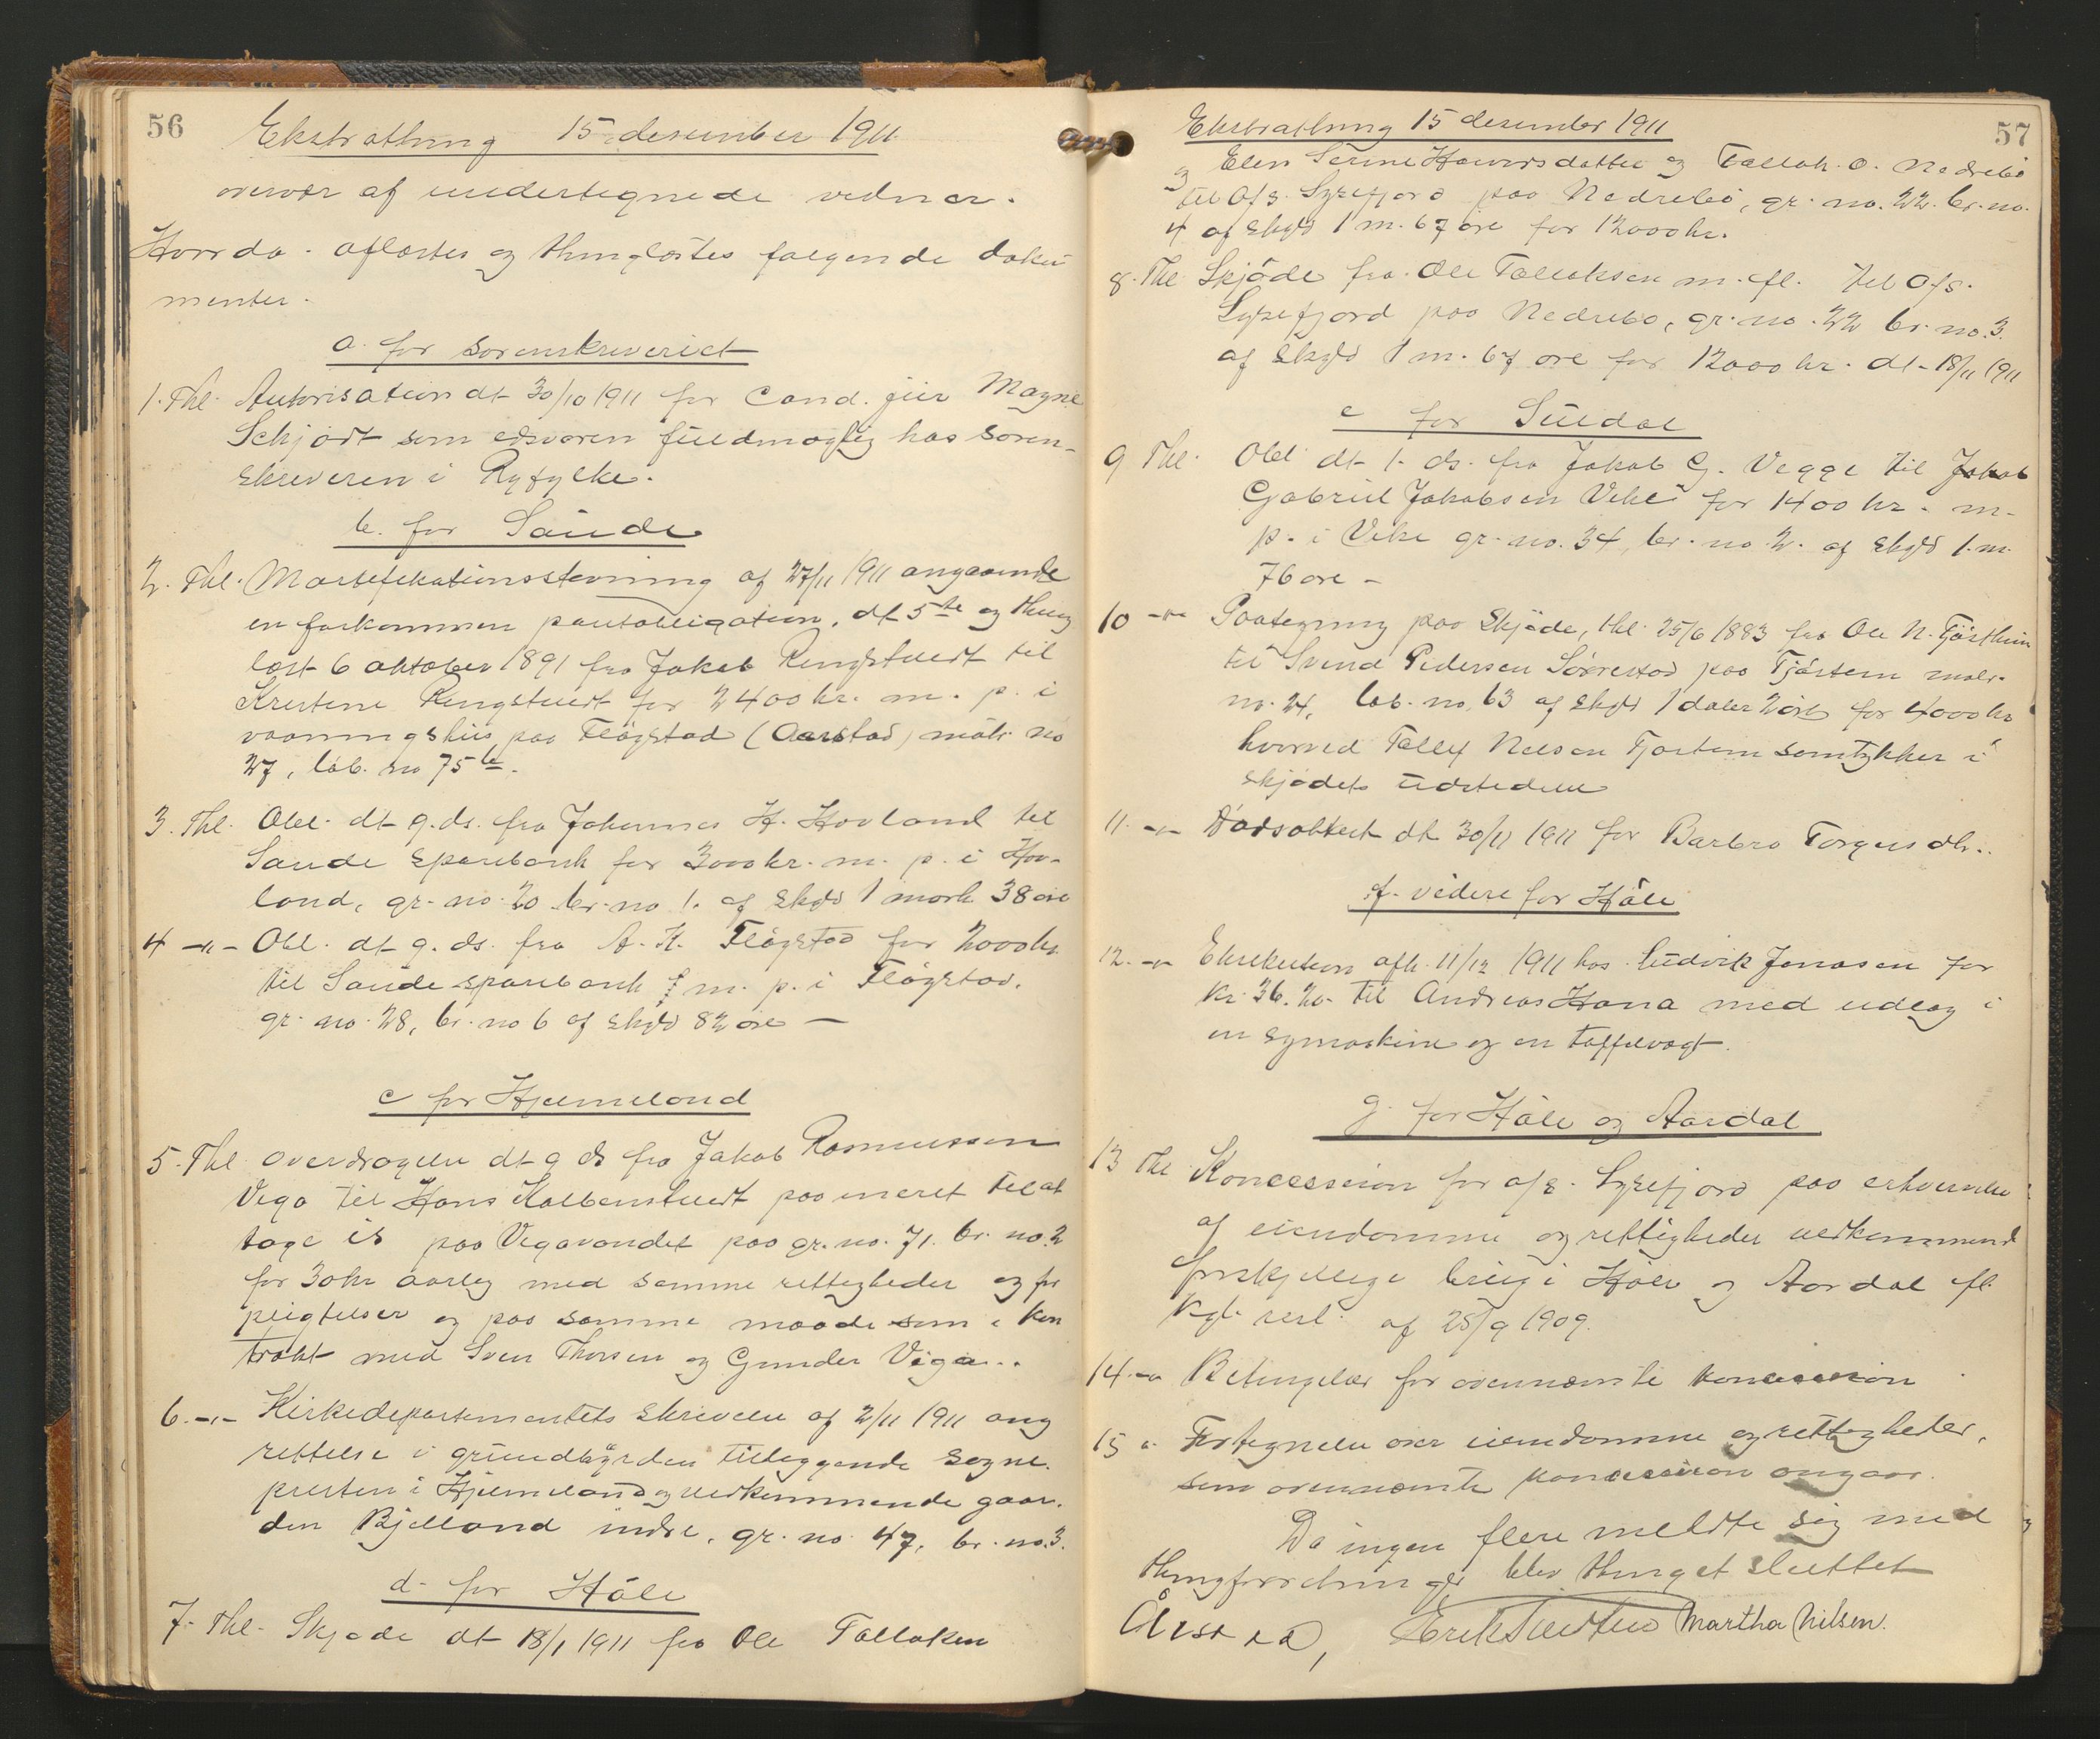 56
Ekstrathing 15 desember 1911
overvær af undertegnede vidner.
Hvorda. aflæstes og thinglæstes følgende doku
menter.
a. for sorenskriveriet
1. Thl. Autorisation dt 30/10 1911 for Cand. jur Magne
Schjødt som edsvoren fuldmægtig hos soren-
skriveren i Ryfylke.
b. for Saude
2. Thl. Mortifikationsstevning af 27/11 1911 angaaende
en forkommen pantobligation, dt 5te og thing
læst 6 oktober 1891 fra Jakob Ringstvedt til
Kristine Ringstvedt for 2400 kr. m. p. i
vaaningshus paa Fløgstad (Aarstad) matr no
27, løb. no 75 b.
3. Thl. Obl. dt 9. ds. fra Johannes H. Hovland til
Saude sparebank for 3000 kr. m. p. i Hov-
land, gr. no. 20 br. no 1. af skyld 1 mark 38 øre
4 -"- Obl. dt 9. ds. fra A. K. Fløgstad for 2000 kr.
til Saude sparebank m. p. i Fløgstad.
gr. no. 28, br. no 6 af skyld 82 øre —
c for Hjelmeland
5. Thl. overdragelse dt 9 ds fra Jakob Rasmussen
Viga til Hans Kolbenstvedt paa eneret til at
tage is paa Vigavandet paa gr. no. 71. br. no. 2
for 30 kr aarlig med samme rettigheder og for
pligtelser og paa samme maade som i kon
trakt med Sven Thorsen og Gunder Viga..
6. -"- Kirkedepartementets skrivelse af 2/11 1911 ang
rettelse i grundbyrden tilliggende sogne.
presten i Hjelmeland vedkommende gaar.
den Bjelland indre, gr. no 47, br. no. 3.
d- for Høle
7. Thl. Skjøde dt 18/1 1911 fra Ole Tallaksen
57
Ekstrathing 15 desember 1911
og Elen Serine Haavarsdatter og Tallak O. Nedrebø
til A/S. Lysefjord paa Nedrebø, gr. no. 22. br. no.
4 af skyld 1 m. 67 øre for 12000 kr.
8. Thl. Skjøde fra Ole Tallaksen m. fl. til A/S.
Lysefjord paa Nedrebø, gr. no. 22 br. no. 3.
af skyld 1 m. 67 øre for 12000 kr. dt. 18/11 1911
e for Suldal
9 Thl. Obl dt 1. ds. fra Jakob G. Vegge til Jakob
Gabriel Jakobsen Veke for 1400 kr. m-
p. i Veke gr. no. 34, br. no. 2. af skyld 1. m.
76 øre –
10 -"- Paategning paa skjøde, thl. 25/6 1883 fra Ole N. Tjøstheim
til Svend Pedersen paa Tjøstem matr.
no. 24, løb. no. 63 af skyld 1 daler 2 ort for 4000 kr
hvorved Nelsen Tjøstem samtykker i
skjødets udstedelse
11. -"- Dødsattest dt 30/11 1911 for Barbro Torgersdtr..
f. videre for Høle
12. -"- Eksekution afh. 11/12 1911 hos Ludvik Jonasen for
kr. 36. 20. til Andreas Hana med udlæg i
en symaskine og en taffelvægt.
g. for Høle og Aardal
13 Thl Koncession for A/S. Lysefjord paa erhvervelse
af eiendomme og rettigheder vedkommend
forskjellige brug i Høle og Aardal fl.
kgl. resl. af 25/9 1909.
14. -"- Betingelser for ovennævnte koncession
15 " Fortegnelse over eiendomme og rettigheder,
som ovennævnte koncession angaar.
Da ingen flere meldte sig med
thingforretninger blev thinget sluttet
Martha Nilsen.